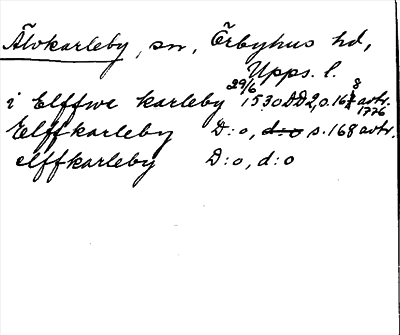 Älvkarleby, sn, Örbyhus hd,
Upps. l.
i Elffwe karleby 29/6 1530 DD2, s. 168 avtr. 1776
Elffkarleby D:o, d:o s. 168 avtr.
elffkarleby D:o, d:o